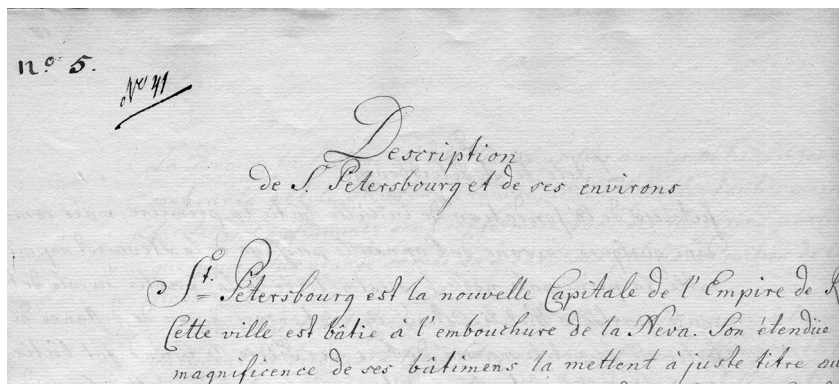 nº 5.
Nº 41
Description
de S. Petersbourg et de ses environs
St. Petersbourg est la nouvelle Capitale de l'Empire de
Cette ville est bâtie à l'embouchure de la Neva. Son étendüe
magnificence de ses bâtimens la mettent à juste titre au